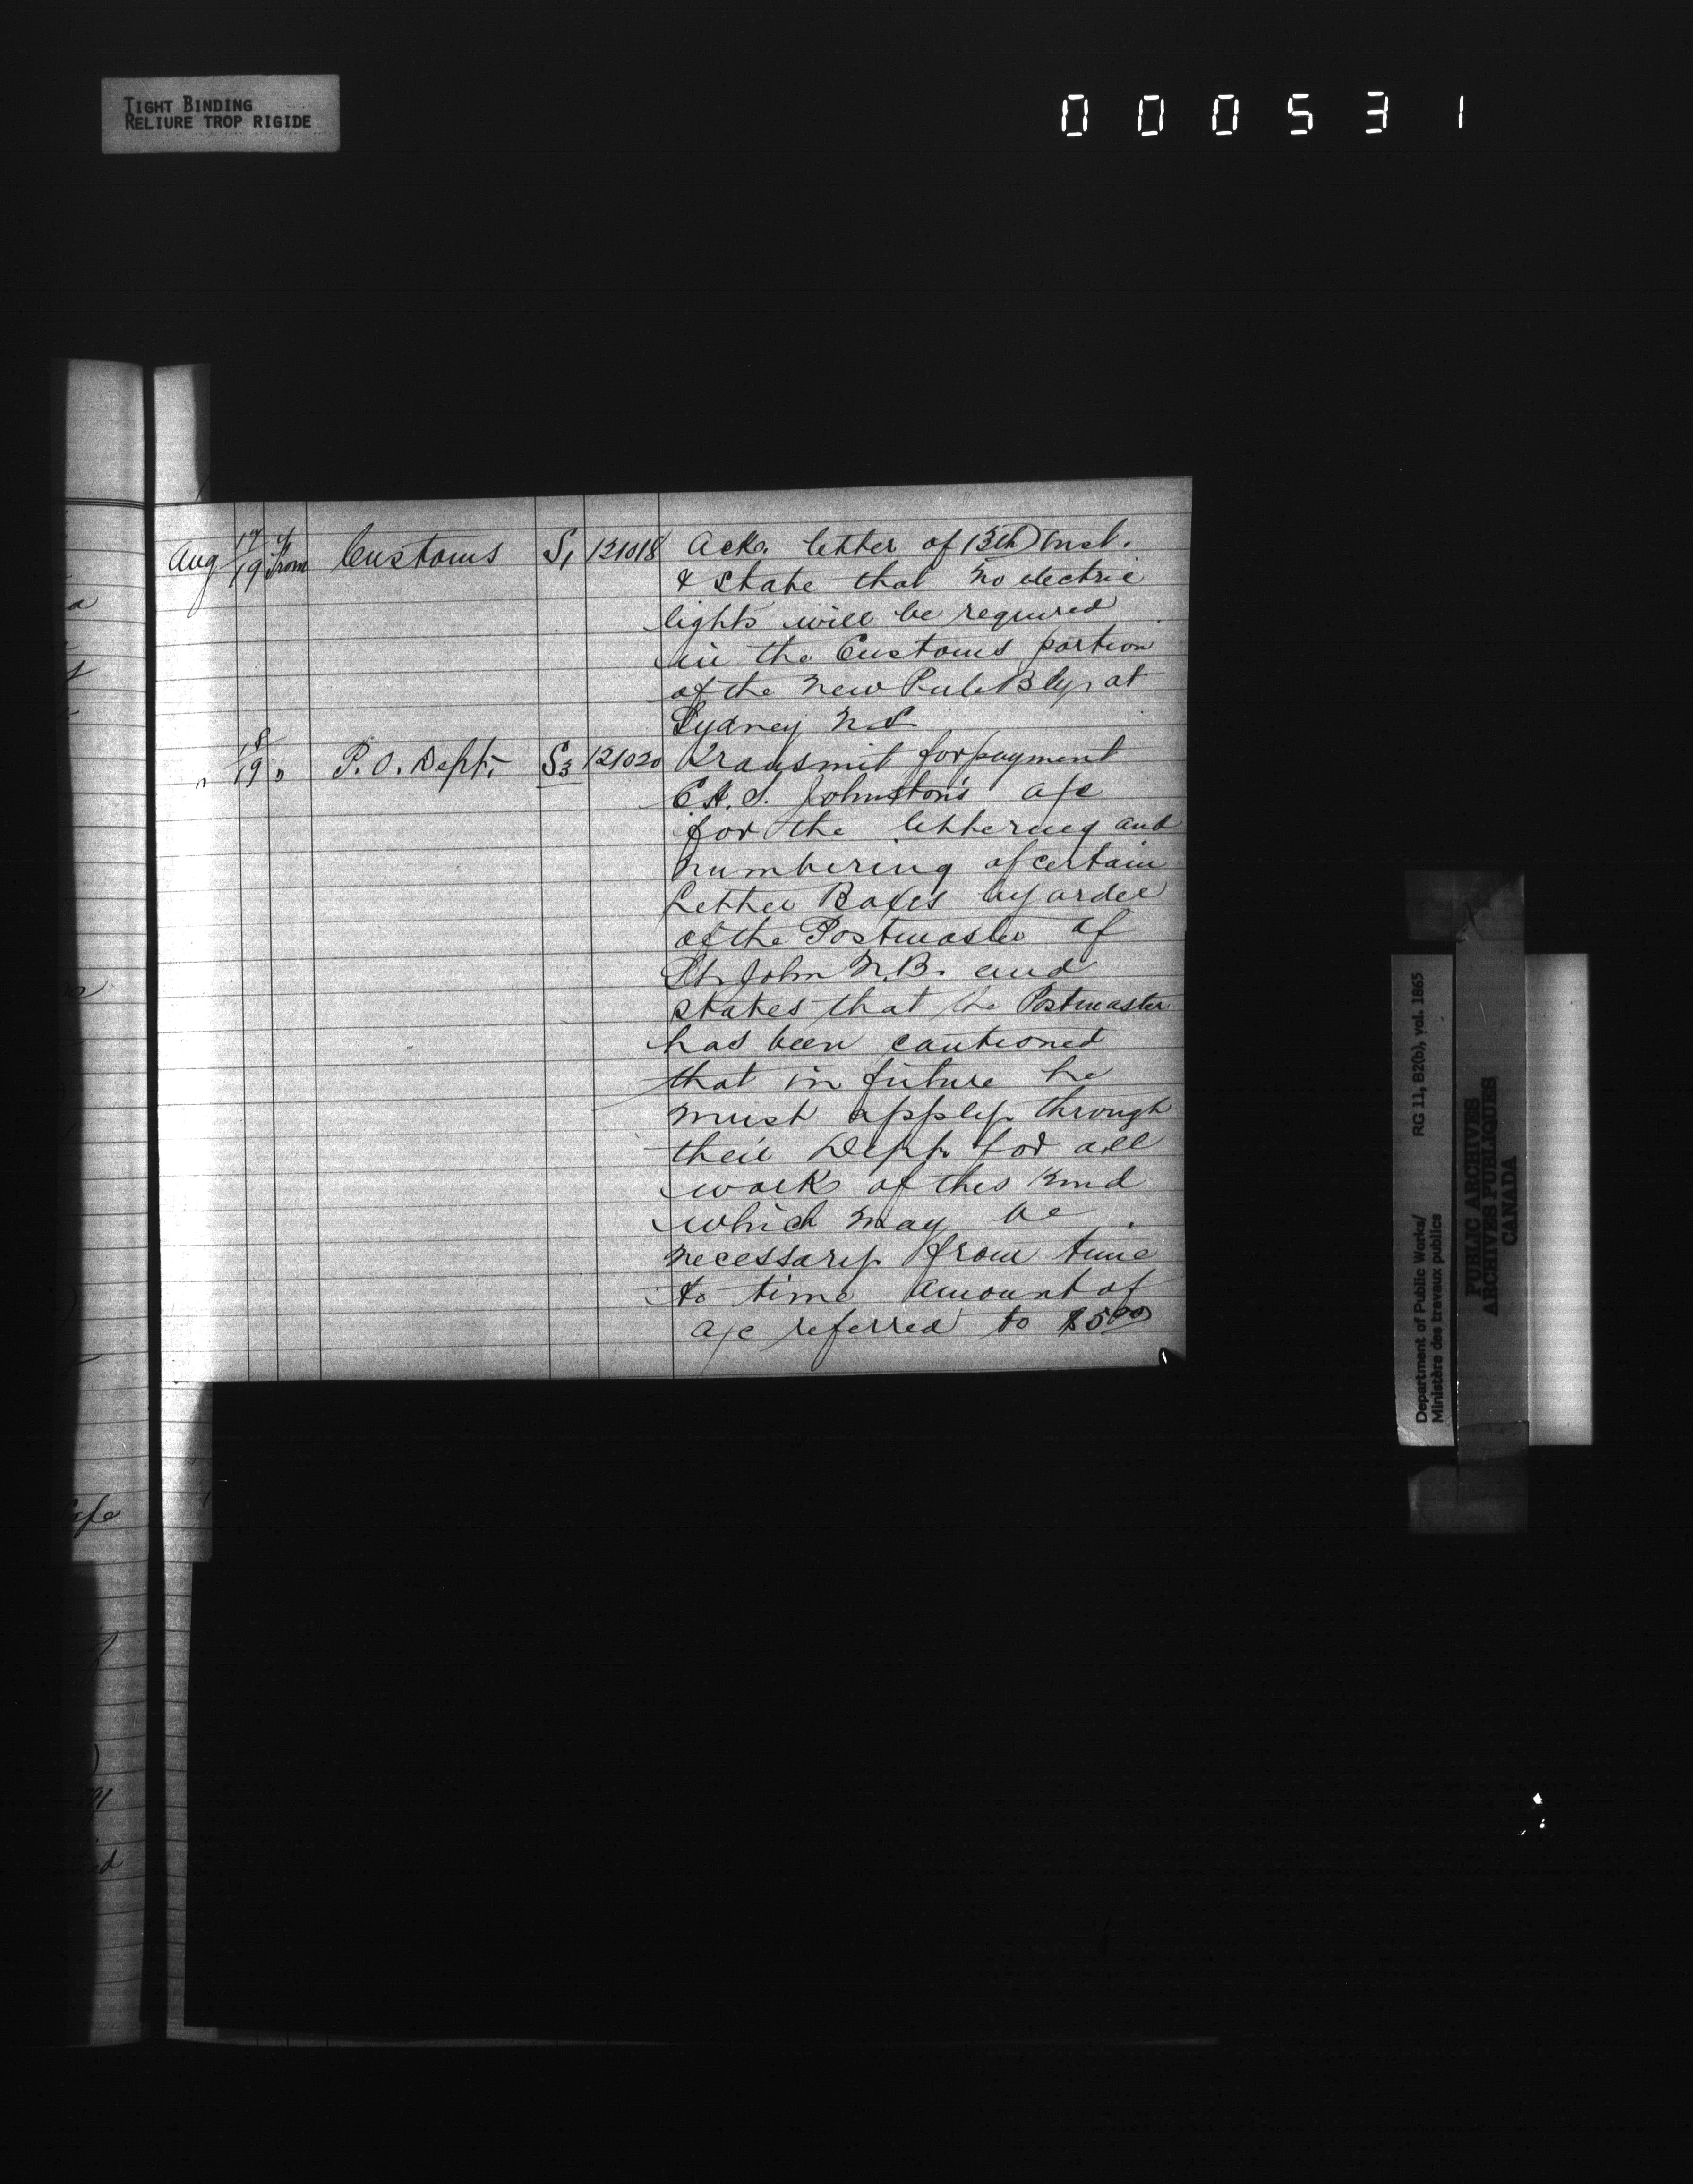 TIGHT BINDING
RELIURE TROP RIGIDE
000531
Aug 17/19 From Customs S1 121018 Ack. letter of 13th Inst.
& state that no electric
lights will be required
in the Customs portion
of the New Pub Bdg. at
Sydney N.S
" 18/19 " P.O. Dept. S3 121020 Transmit for payment
Johnston's a/c
for the lettering and
numbering of certain
Letter Boxes by order
of the Postmaster of
St. John N.B. and
states that the Postmaster
has been cautioned
that in future he
must apply through
their Dept. for all
work of this kind
which may be
necessary from time
to time amount of
a/c referred to $5.00
Department of Public Works/
Ministère des travaux publics
RG 11, B2(b), vol. 1865
PUBLIC ARCHIVES
ARCHIVES PUBLIQUES
CANADA